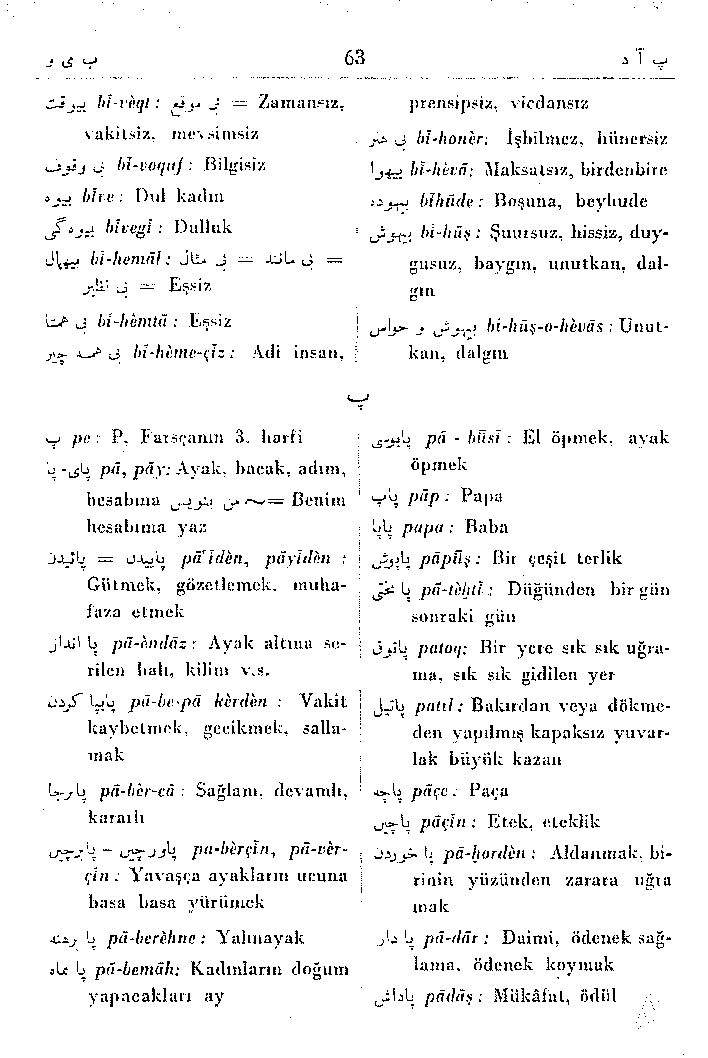 ب ی و 63 پ آ د
بیوقت bî-vèqt : بی موقع = Zamansız,
vakitsiz, mevsimsiz
بی وقوف bî-voquf : Bilgisiz
بیوه bîve : Dul kadın
بیوه‌گی bîvegî : Dulluk
بیهمال bî-hemāl : بی مانند = بی مثال =
بی نظیر = Eşsiz
بی همتا bî-hèmtā : Eşsiz
بی همه چیز bî-hème-çîz : Adi insan,
prensipsiz, vicdansız
بی هنر bî-honèr: İşbilmez, hünersiz
بیهوا bî-hèvā: Maksatsız, birdenbire
بیهوده bîhūde : Boşuna, beyhude
بیهوش bî-hūş : Şuursuz, hissiz, duy-
gusuz, baygın, unutkan, dal-
gın
بیهوش و حواس bî-hūş-o-hèvās : Unut-
kan, dalgın
پ
پ pe : P, Farsçanın 3. harfi
پا -پای pā, pāy: Ayak, bacak, adım,
hesabına من بنویس ~ = Benim
hesabıma yaz
پائیدن = پاییدن pā'îdèn, pāyîdèn :
Gütmek, gözetlemek, muha-
faza etmek
پا انداز pā-èndāz : Ayak altına se-
rilen halı, kilim v.s.
پابپا کردن pā-be-pā kèrdèn : Vakit
kaybetmek, gecikmek, salla-
mak
پا برجا pā-bèr-cā : Sağlam, devamlı,
kararlı
پابرچین - پاورچین pa-bèrçîn, pā-vèr-
çîn : Yavaşça ayakların ucuna
basa basa yürümek
پا برهنه pā-berèhne : Yalınayak
پا بماه pā-bemāh: Kadınların doğum
yapacakları ay
پابوسی pā - būsî : El öpmek, ayak
öpmek
پاپ pāp : Papa
پاپا papa : Baba
پاپوش pāpūş : Bir çeşit terlik
پا تختی pā-tèhtî : Düğünden bir gün
sonraki gün
پاتوق patoq: Bir yere sık sık uğra-
ma, sık sık gidilen yer
پاتیل patîl : Bakırdan veya dökme-
den yapılmış kapaksız yuvar-
lak büyük kazan
پاچه pāçe : Paça
پاچین pāçîn : Etek, eteklik
پا خوردن pā-hordèn : Aldanmak, bi-
rinin yüzünden zarara uğra
mak
پا دار pā-dār : Daimi, ödenek sağ-
lama, ödenek koymak
پاداش pādāş : Mükâfat, ödül